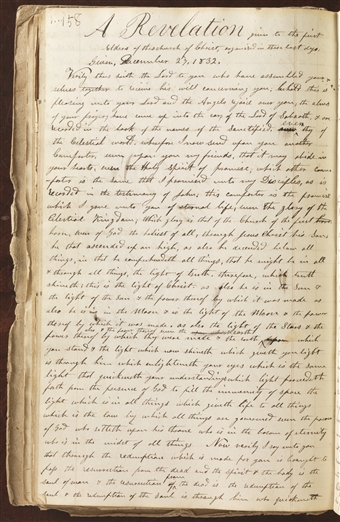 158
A Revelation given to the first
Elders of this church of Christ, organized in these last days.
Given, December 27, 1832.
Verily thus saith the Lord to you who have assembled your
selves together to receive his will concerning you, behold this is
pleasing unto your Lord and the Angels rejoice over you, the alms
of your prayers have come up into the ears of the Lord of Sabaoth, & are
recorded in the book of the names of the Sanctified, even they of
the Celestial world. wherefore I now send upon you another
Comforter, even upon you my friends, that it may abide in
your hearts, even the Holy Spirit of promise, which other com-
forter is the same that I promised unto my Disciples, as is
recorded in the testimony of John, this comforter is the promise
which I gave unto you of eternal life, even the glory of the
Celestial Kingdom, which glory is that of the Church of the first
born, even of God the holiest of all, through Jesus Christ his Son
he that ascended up on high, as also he descended below all
things, in that he comprehended all things, that he might be in all
& through all things, the light of truth, which truth
shineth, this is the light of Christ. as also he is in the sun &
the light of the sun & the power thereof by which it was made as
also he is in the Moon & is the light of the Moon & the power
thereof by which it was made, as also the light of the Stars & the
power thereof by which they were made & the earth also & the power thereof even the earth upon which
you stand & the light which now shineth which giveth you light
is through him which enlighteneth your eyes which is the same
light that quickeneth your understandings which light proceedeth
forth from the presence of God to fill the immensity of space the
light which is in all things which giveth life to all things
which is the law by which all things are governed even the power
of God who sitteth upon his throne who is in the bosom of eternity
who is in the midst of all things Now verily I say unto you
that through the redemption which is made for you is brought to
pass the resurrection from the dead and the spirit & the body is the
soul of man & the resurrection from the dead is the redemption of the
soul & the redemption of the soul is through him who quickeneth